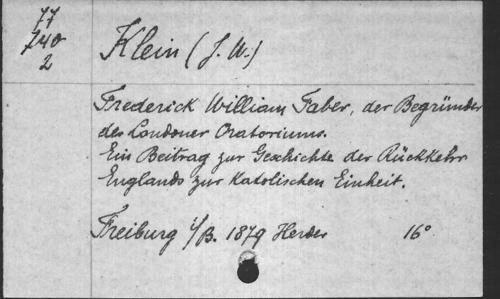 77
740
2
Klein (J. W.)
Frederick William Faber, der Begründer
des Londoner Oratoriums.
Ein Beitrag zur Geschichte der Rückkehr
Englands zur Katolischen Einheit.
Freiburg i/B. 1879 Herder 16°